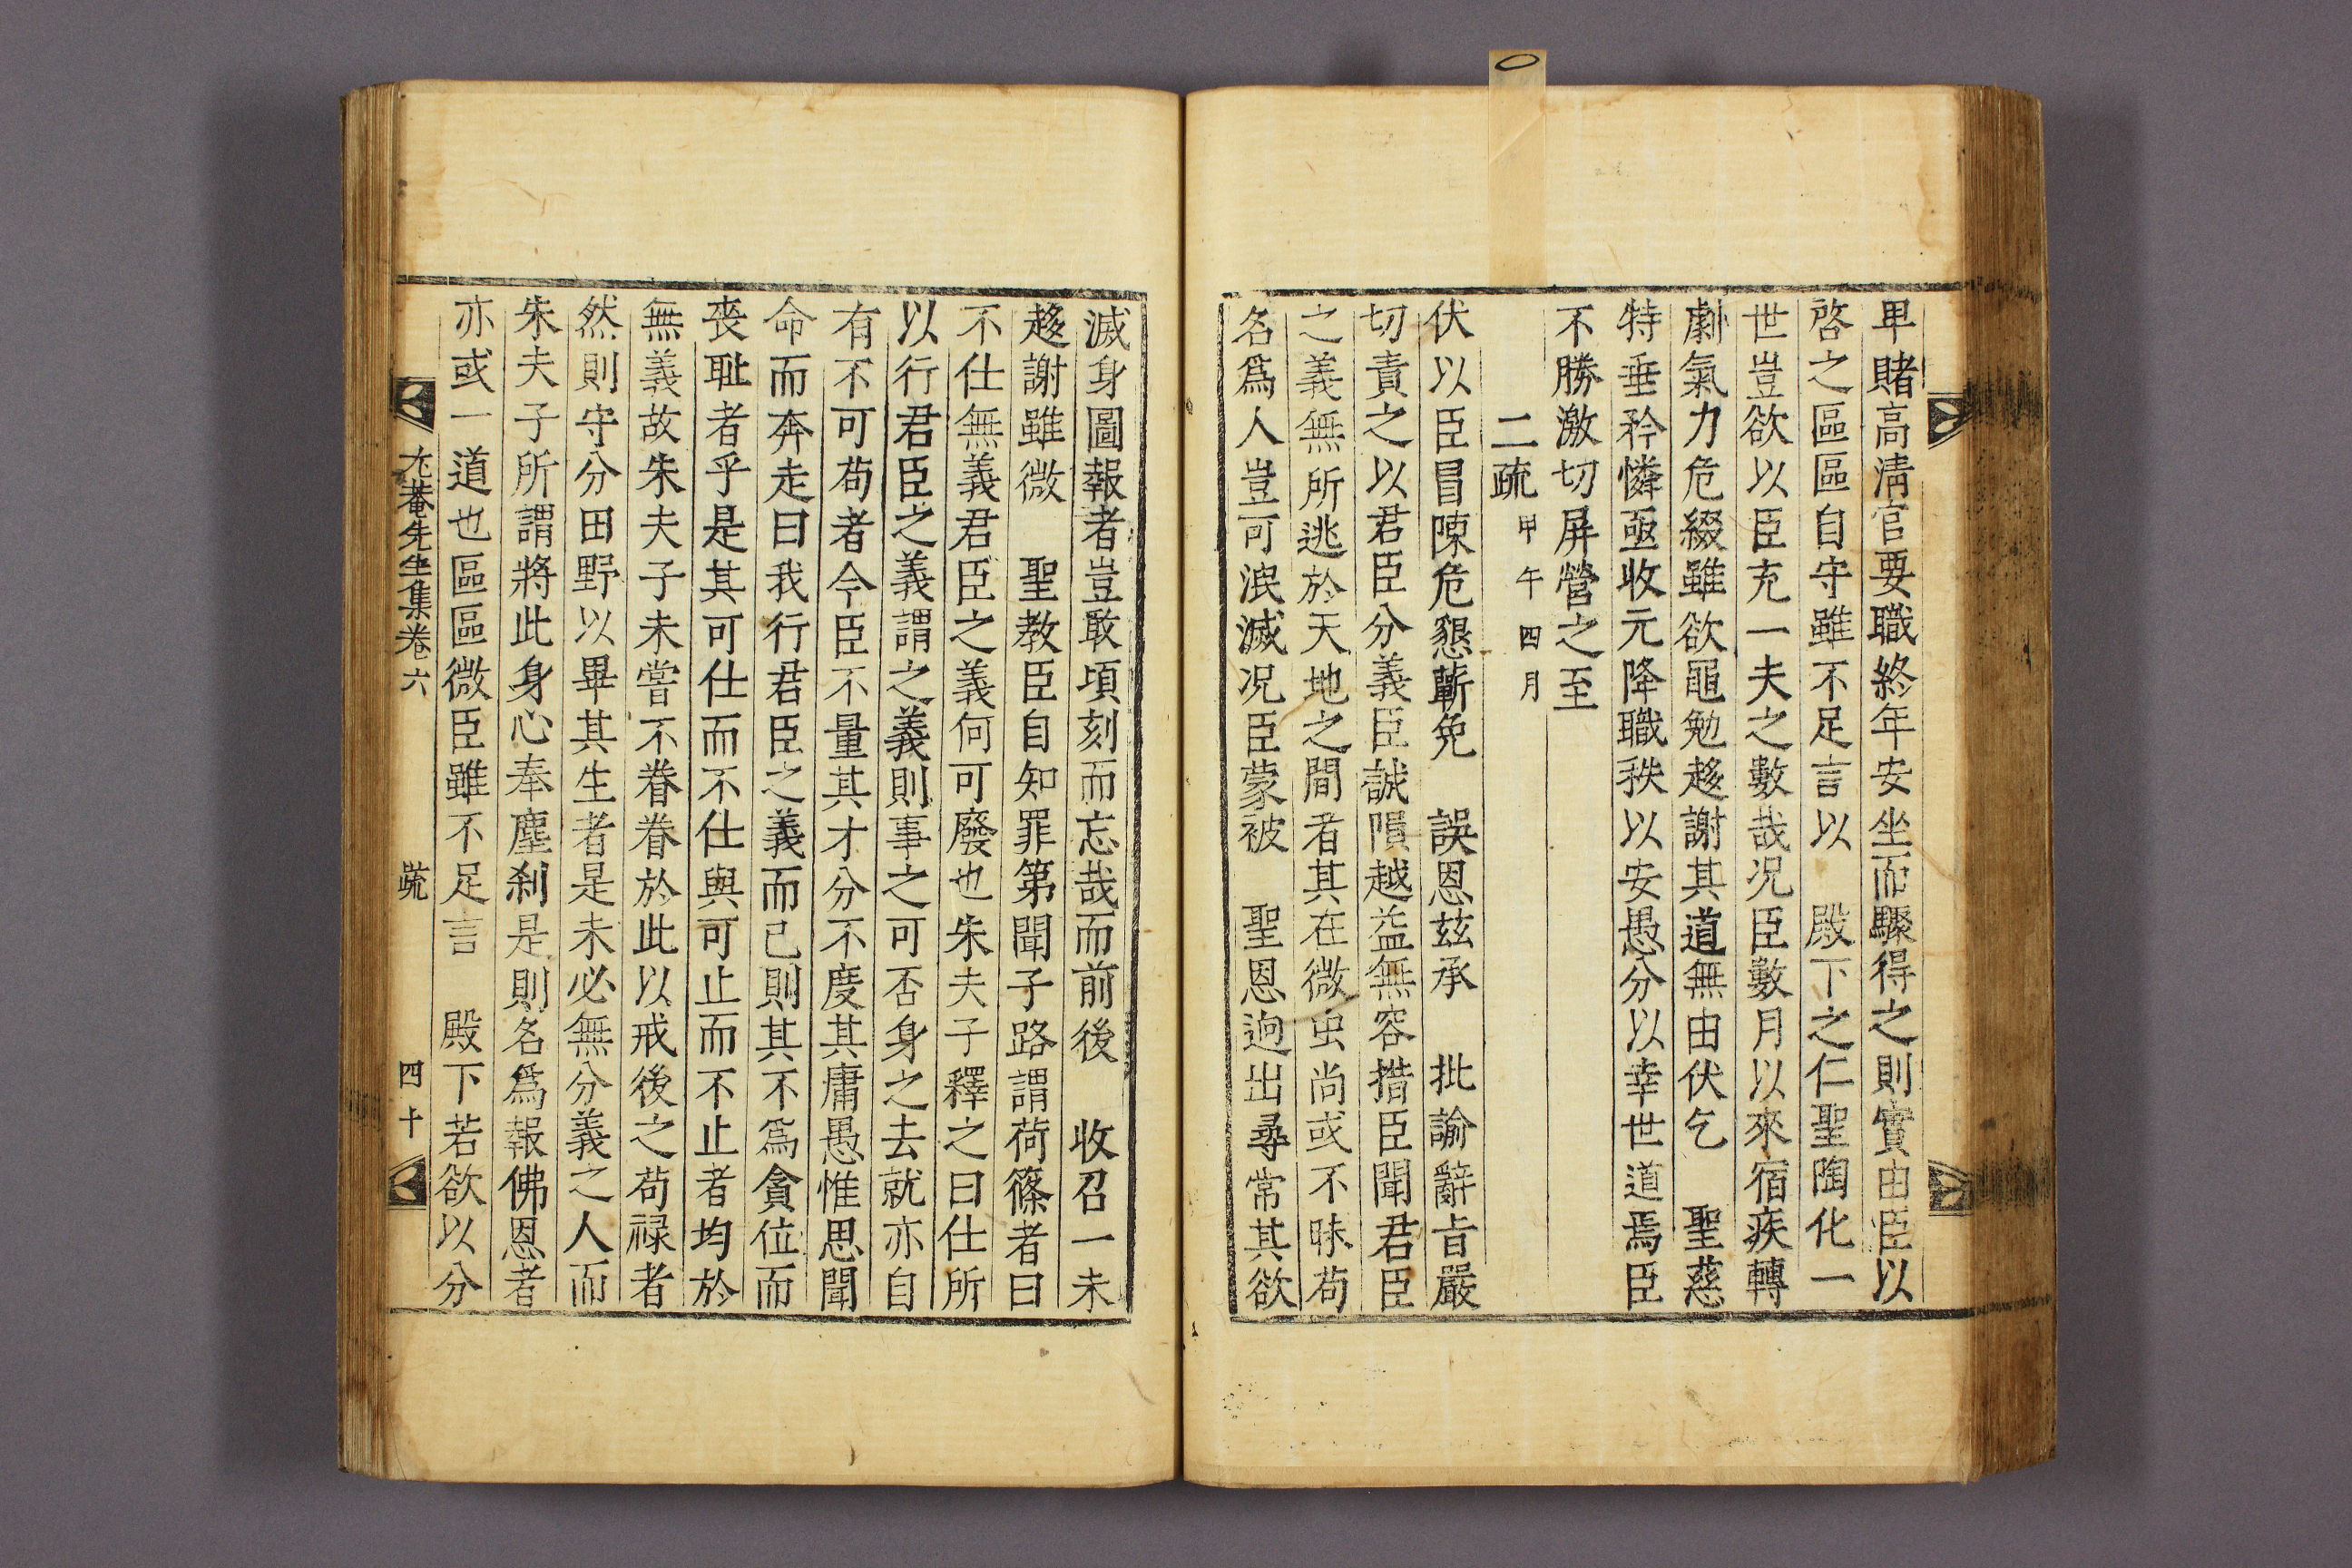 卑賭高淸官要職終年安坐而驟得之則實由臣以
啓之區區自守雖不足言以 殿下之仁聖陶化一
世豈欲以臣充一夫之數哉况臣數月以來宿疾轉
劇氣力危綴雖欲黽勉趍謝其道無由伏乞 聖慈
特垂矜憐亟收元降職秩以安愚分以幸世道焉臣
不勝激切屛營之至
二疏 甲午四月
伏以臣冒陳危懇蘄免 誤恩玆承 批諭辭旨嚴
切責之以君臣分義臣誠隕越益無容措臣聞君臣
之義無所逃於天地之間者其在微虫尚或不昧苟
名爲人豈可泯滅况臣蒙被 聖恩逈出尋常其欲
滅身圖報者豈敢頃刻而忘哉而前後 收召一未
趍謝雖微 聖教臣自知罪第聞子路謂荷篠者曰
不仕無義君臣之義何可廢也朱夫子釋之曰仕所
以行君臣之義謂之義則事之可否身之去就亦自
有不可苟者今臣不量其才分不度其庸愚惟思聞
命而奔走曰我行君臣之義而已則其不爲貪位而
喪耻者乎是其可仕而不仕與可止而不止者均於
無義故朱夫子未嘗不眷眷於此以戒後之苟祿者
然則守分田野以畢其生者是未必無分義之人而
朱夫子所謂將此身心奉塵刹是則名爲報佛恩者
亦或一道也區區微臣雖不足言 殿下若欲以分
尤菴先生集卷六 疏 四十